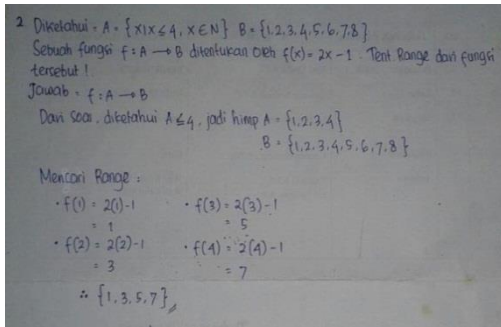 2 Diketahui = A = {x|x ≤ 4, x ∈ N} B = {1.2.3.4.5.6.7.8}
Sebuah fungsi f : A → B ditentukan oleh f(x) = 2x - 1. Tent. Range dari fungsi
tersebut !
Jawab = f : A → B
Dari soal, diketahui A ≤ 4, jadi himp A = {1.2.3.4}
B = {1.2.3.4.5.6.7.8}
Mencari Range :
• f(1) = 2(1)-1 • f(3) = 2(3)-1
= 1 = 5
• f(2) = 2(2)-1 • f(4) = 2(4)-1
= 3 = 7
∴ {1.3.5.7}//